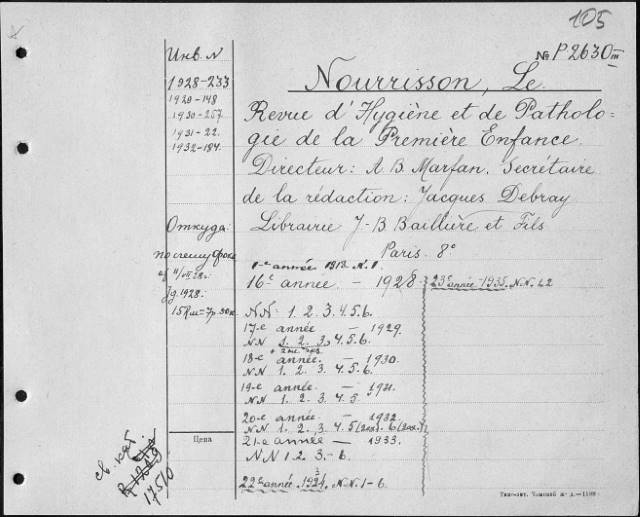 105
Инв. N
№ P 2630 III
1928-233
1929-148
1930-257
1931-22.
1932-184.
Nourrisson, Le
Revue d'Hygiène et de Patholo-
gie de la Première Enfance.
Directeur: A. B. Marfan. Secrétaire
de la rédaction: Jacques Debray
Librairie J-B Baillière et Fils
Paris. 8°
Откуда:
по счету
1928.
1-e année 1913. N. 1.
16e année. – 1928
NN: 1. 2. 3. 4. 5. 6.
17-e année – 1929.
NN 1. 2. 3. 4. 5. 6.
18-e année. – 1930.
NN 1. 2. 3. 4. 5. 6.
19-e année. – 1931.
NN 1. 2. 3. 4. 5
20-e année. – 1932.
NN. 1. 2. 3. 4. 5
21-e année – 1933.
NN 1 2. 3. – 6.
22e année. 1934. N.N. 1-6.
23e année – 1935. N.N.
Цена
св. кат.
17510